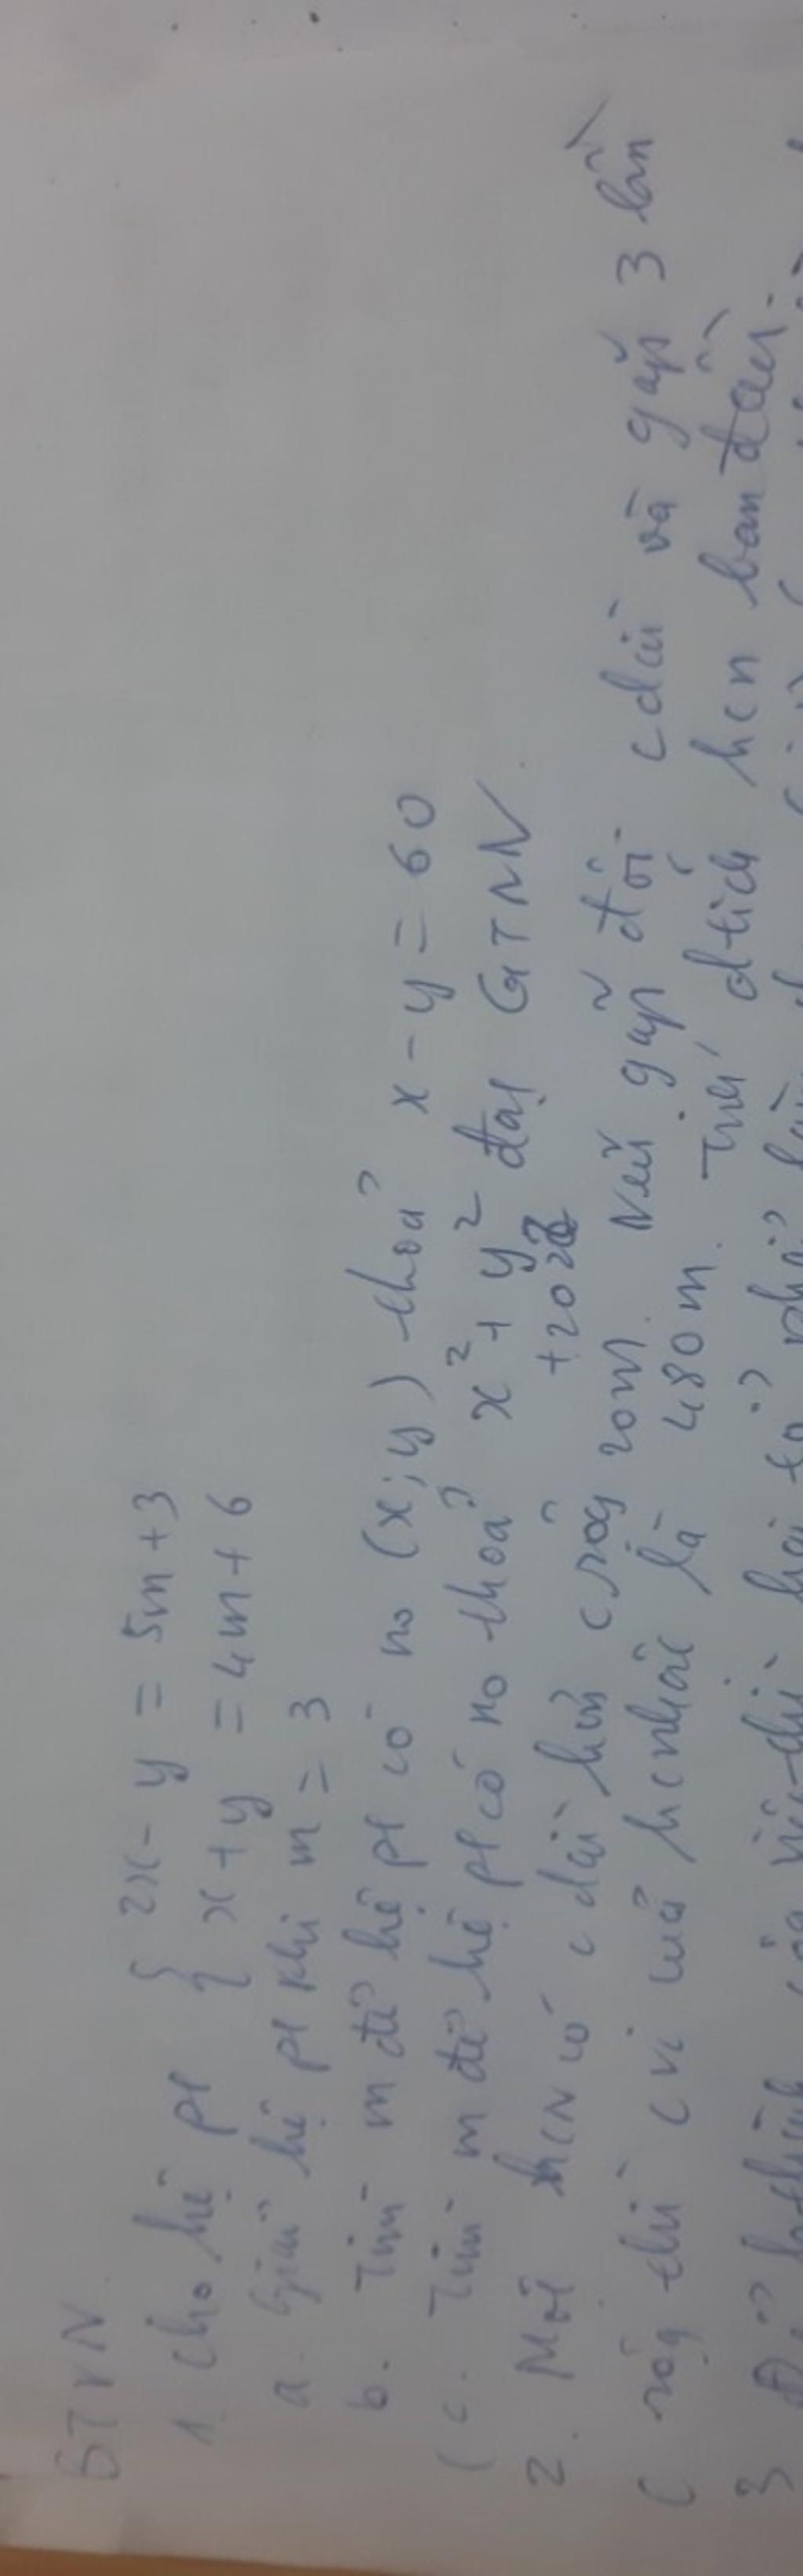 BTVN
1. Cho hệ pt { 2x - y = 5m + 3
x + y = 4m + 6
a. Giải hệ pt khi m = 3
b. Tìm m để hệ pt có no (x; y) thoả x - y = 60
(c. Tìm m để hệ pt có no thoả x² + y² đạt GTNN.
+202
2. Một hcn có cdài hơn crộg 20m. Nếu gấp đôi cdài và gấp 3 lần
crộg thì cvi mới hcnhật là 480m. Tính dtích hcn ban đầu.
3